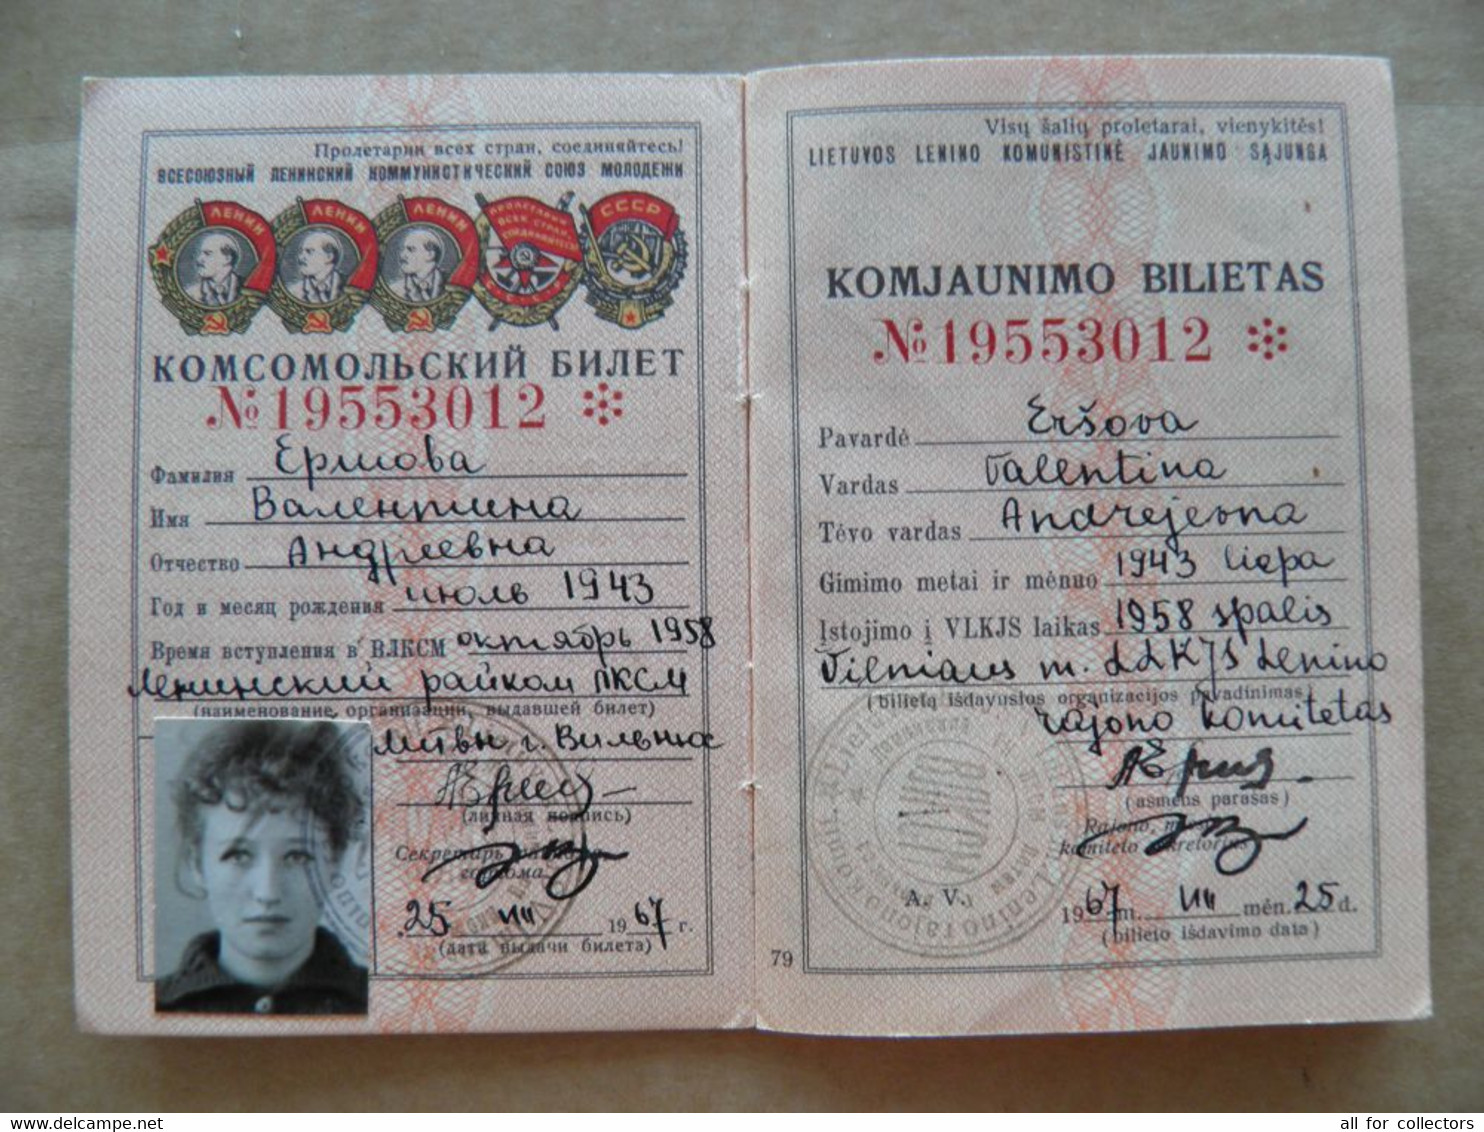 Пролетарии всех стран, соединяйтесь!
ВСЕСОЮЗНЫЙ ЛЕНИНСКИЙ КОММУНИСТИЧЕСКИЙ СОЮЗ МОЛОДЕЖИ
ЛЕНИН ЛЕНИН ЛЕНИН ПРОЛЕТАРИИ ВСЕХ СТРАН, СОЕДИНЯЙТЕСЬ СССР
КОМСОМОЛЬСКИЙ БИЛЕТ
№ 19553012
Фамилия Ершова
Имя Валентина
Отчество Андреевна
Год и месяц рождения июль 1943
Время вступления в ВЛКСМ октябрь 1958
Ленинский райком ЛКСМ
(наименование организации, выдавшей билет)
Литвы г. Вильнюс
(личная подпись)
Секретарь
25 VIII 1967 г.
(дата выдачи билета)
Visų šalių proletarai, vienykitės!
LIETUVOS LENINO KOMUNISTINĖ JAUNIMO SĄJUNGA
KOMJAUNIMO BILIETAS
№ 19553012
Pavardė Eršova
Vardas Valentina
Tėvo vardas Andrejevna
Gimimo metai ir mėnuo 1943 liepa
Įstojimo į VLKJS laikas 1958 spalis
Vilniaus m. LLKJS Lenino
(bilietą išdavusios organizacijos pavadinimas)
rajono komitetas
(asmens parašas)
Rajono,
komiteto sekretorius
A. V.
1967 m. VIII mėn. 25 d.
(bilieto išdavimo data)
79
www.delcampe.net
all for collectors